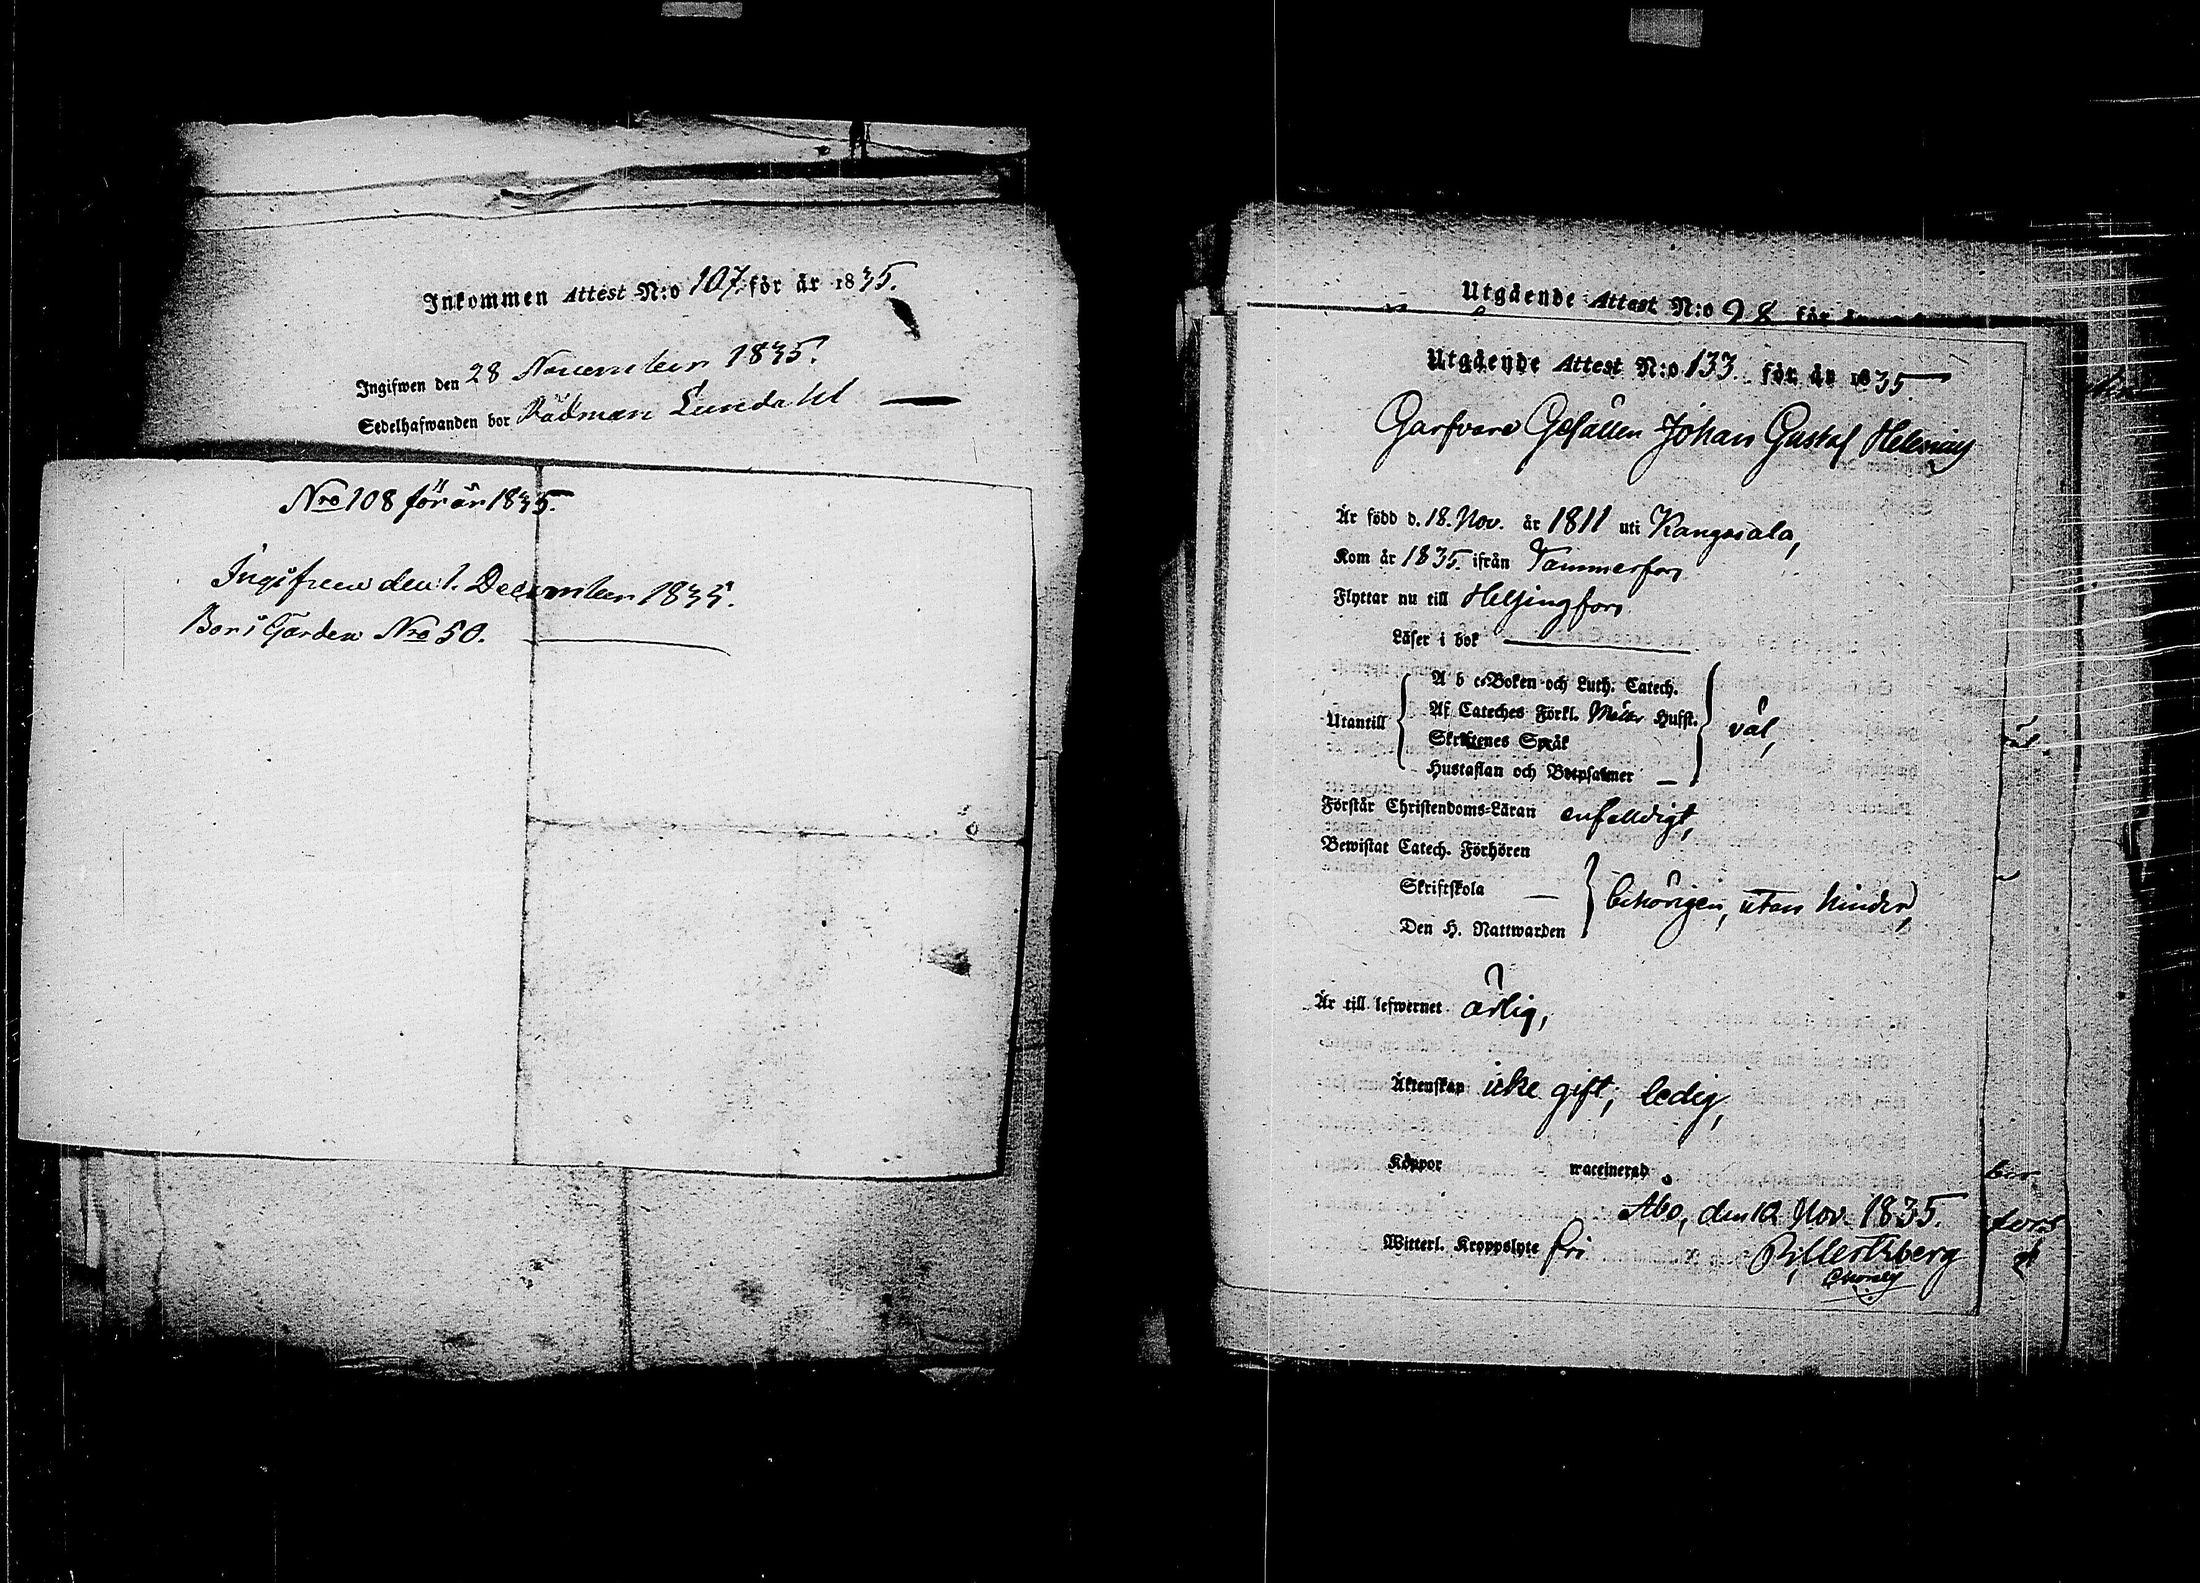 Inkommen Attest N:o 107 för år 1835.
Ingifwen den 28 November 1835.
Sedelhafwanden bor Rådman Lundahl
Nro 108 för år 1835.
Ingifven den 1. December 1835.
Bor i Gården Nro 50.
Utgående Attest N:o 98 för
Utgående Attest N:o 133. för år 1835.
Garfvare Gesällen Johan Gustaf
Är född d. 18. Nov. år 1811 uti Kangasala,
Kom år 1835. ifrån Tammerfors
Flyttar nu till Helsingfors.
Läser i bok
A b c-Boken och Luth. Catech.
Utantill Af Cateches Förkl. Hufst. väl,
Skriftenes Språk
Hustaflan och Botpsalmer
Förstår Christendoms-Läran enfalldigt,
Bewistat Catech. Förhören
Skriftskola behörigen, utan hinder,
Den H. Nattwarden
Är till lefwernet ärlig,
Äktenskap icke gift, ledig,
Koppor waccinerad
Åbo, den 12 Nov. 1835.
Witterl. Kroppslyte fri